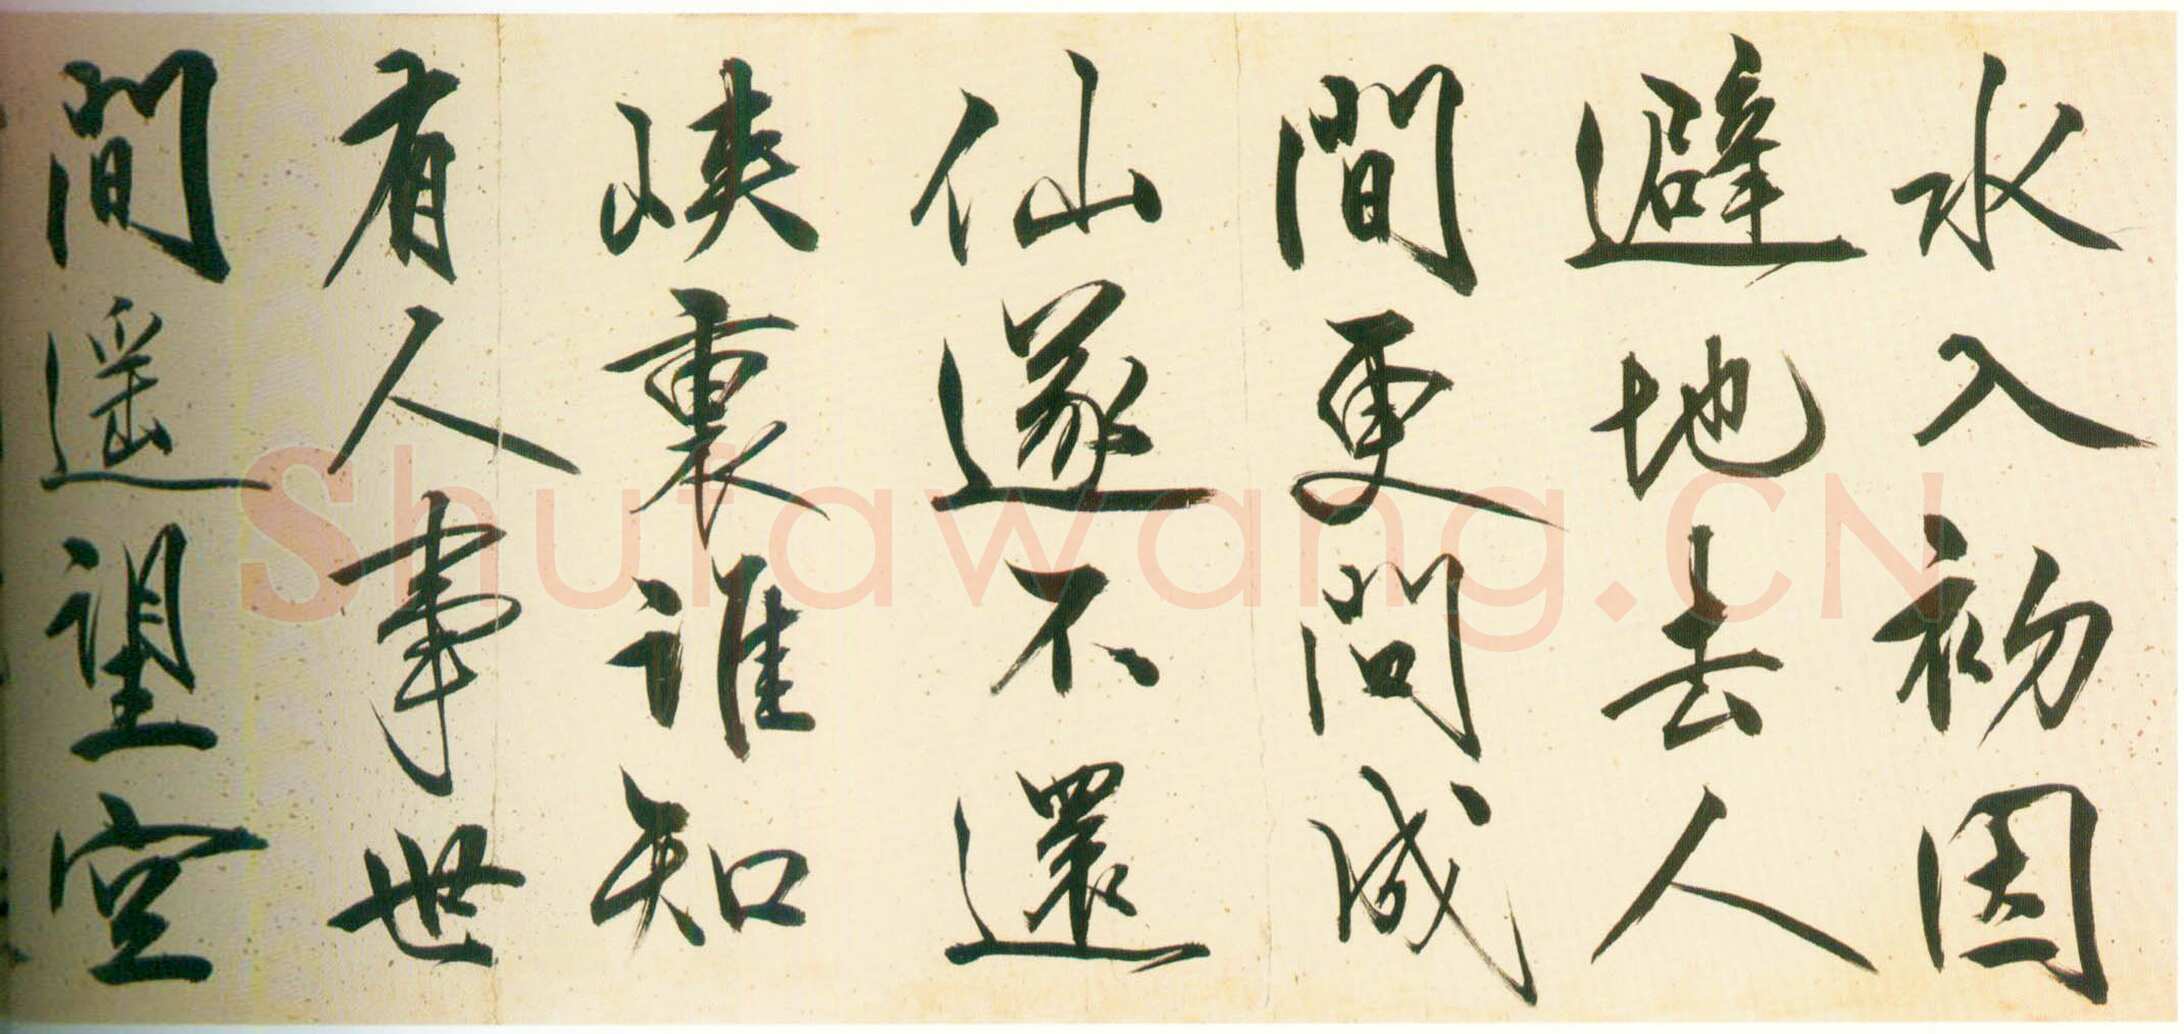 水入初因
避地去人
間更問成
仙遂不還
峽裏誰知
有人事世
間遥望空
Shufawang.CN